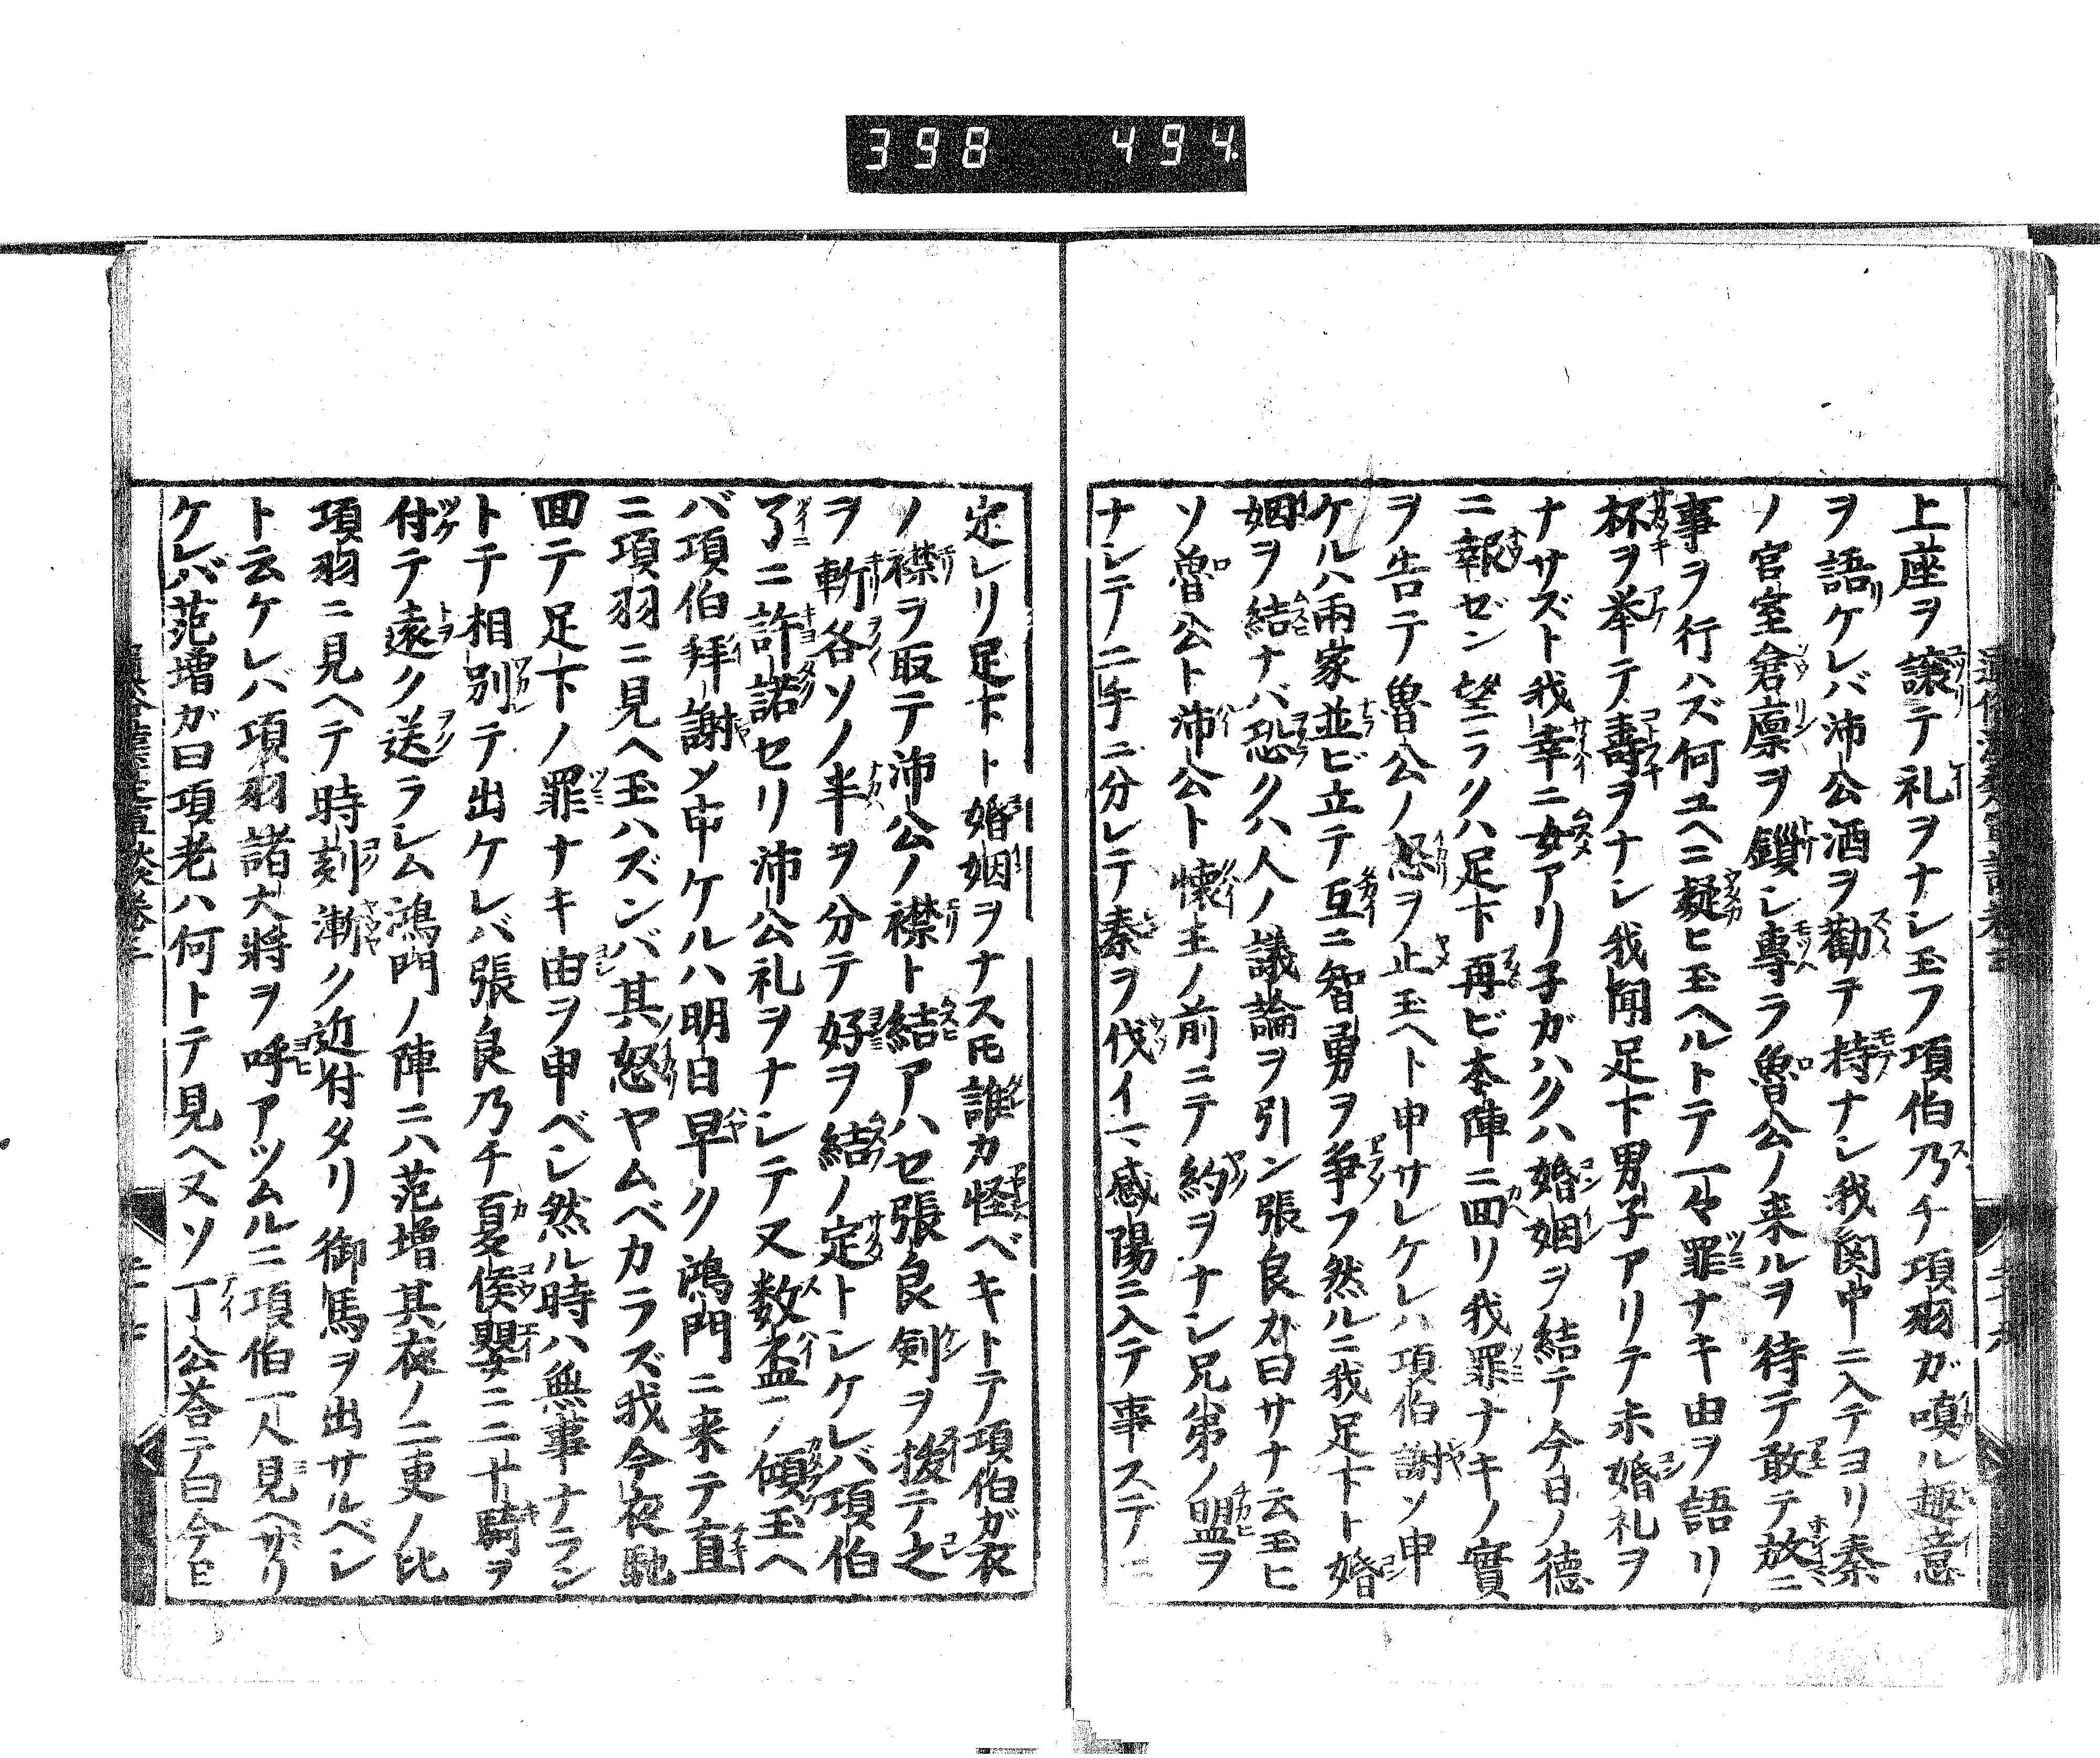 398 494
上座ヲ譲テ礼ヲナシ玉フ項伯乃チ項羽ガ嗔ル趣意
ヲ語ケレバ沛公酒ヲ勸テ持ナシ我関中ニ入テヨリ秦
ノ官室倉廩ヲ鎖シ專ラ魯公ノ来ルヲ待テ敢テ放ニ
事ヲ行ハズ何ユヘニ疑ヒ玉ヘルトテ一々罪ナキ由ヲ語リ
杯ヲ举テ壽ヲナシ我聞足下男子アリテ未婚礼ヲ
ナサズト我幸ニ女アリ子ガハクハ婚姻ヲ結テ今日ノ德
ニ報ゼン望ラクハ足下再ビ本陣ニ回リ我罪ナキノ實
ヲ告テ魯公ノ怒ヲ止玉ヘト申サレケレハ項伯謝ソ申
ケルハ兩家並ビ立テ互ニ智勇ヲ争フ然ルニ我足下ト婚
姻ヲ結ナバ恐クハ人ノ議論ヲ引ン張良ガ曰サナ云玉ヒ
ソ魯公ト沛公ト懐王ノ前ニテ約ヲナシ兄弟ノ盟ヲ
ナシテ二手ニ分レテ秦ヲ伐イマ咸陽ニ入テ事ステニ
定レリ足下ト婚姻ヲナスモ誰カ怪ベキトテ項伯ガ衣
ノ襟ヲ取テ沛公ノ襟ト結アハセ張良剣ヲ拔テ之
ヲ斬各ソノ半ヲ分テ好ヲ結ノ定トシケレバ項伯
了ニ許諾セリ沛公礼ヲナシテ又数盃ヲ傾玉ヘ
バ項伯拜謝ソ申ケルハ明白早ク鴻門ニ来テ直
ニ項羽ニ見ヘ玉ハズンバ其怒ヤムベカラズ我今夜馳
回テ足下ノ罪ナキ由ヲ申ベシ然ル時ハ無事ナラン
トテ相別テ出ケレバ張良乃チ夏侯嬰ニ二十騎ヲ
付テ遠ク送ラシム鴻門ノ陣ニハ范増其夜ノ二更ノ比
項羽ニ見ヘテ時刻漸ク近付タリ御馬ヲ出サルベシ
ト云ケレバ項羽諸大將ヲ呼アツムルニ項伯一人見ヘザリ
ケレバ范増ガ曰項老ハ何トテ見ヘヌソ丁公荅テ曰今日